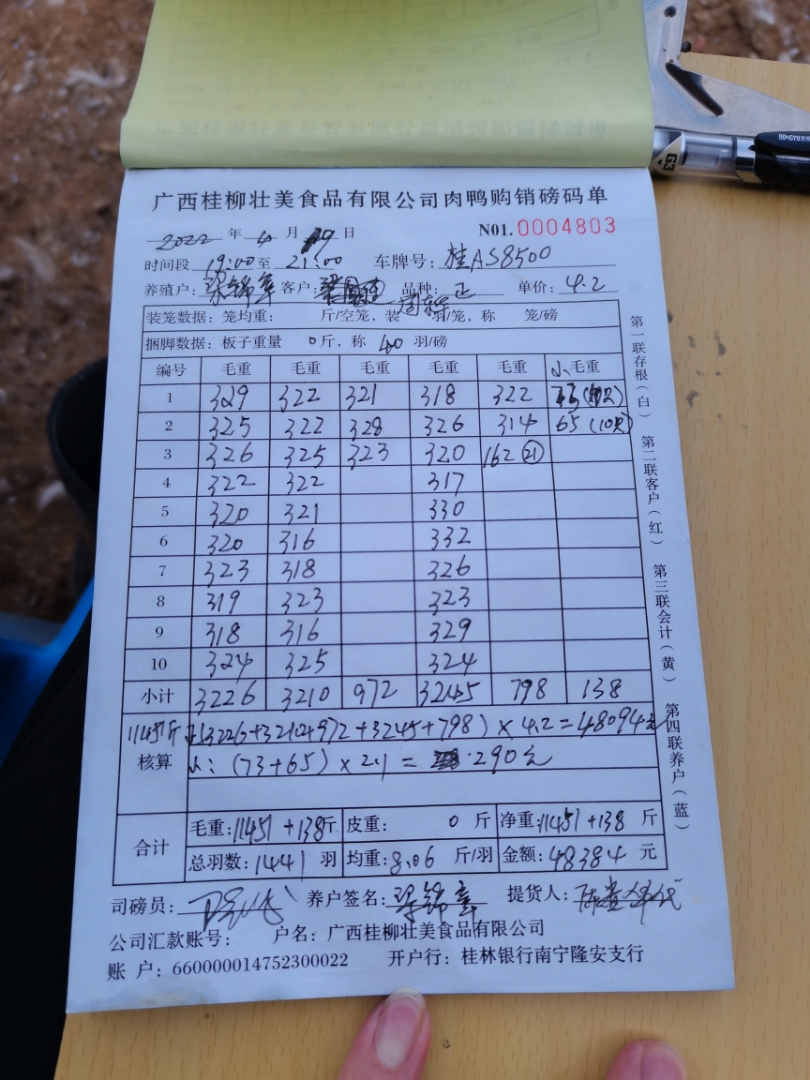 广西桂柳壮美食品有限公司肉鸭购销磅码单
2022 年 4 月 19 日 N01.0004803
时间段 19:00 至 21:00 车牌号: 桂AS8500
养殖户: 客户: 品种: 正 单价: 4.2
装笼数据: 笼均重: 斤/空笼, 装 羽/笼, 称 笼/磅
捆脚数据: 板子重量 0斤, 称 40 羽/磅
编号 毛重 毛重 毛重 毛重 毛重 小毛重
1 329 322 321 318 322 73
2 325 322 328 326 314 65 (10只)
3 326 325 323 320 162 (21)
4 322 322 317
5 320 321 330
6 320 316 332
7 323 318 326
8 319 323 323
9 318 316 329
10 324 325 324
小计 3226 3210 972 3245 798 138
11451斤 正(3226+3210+972+3245+798) × 4.2 = 48094元
核算 小: (73+65) × 2.1 = 290元
合计 毛重: 11451+138斤 皮重: 0 斤 净重: 11451+138 斤
总羽数: 1441 羽 均重: 8.06 斤/羽 金额: 48384 元
司磅员: 养户签名: 提货人:
公司汇款账号: 户名: 广西桂柳壮美食品有限公司
账 户: 660000014752300022 开户行: 桂林银行南宁隆安支行
第一联存根(白) 第二联客户(红) 第三联会计(黄) 第四联养户(蓝)
G3